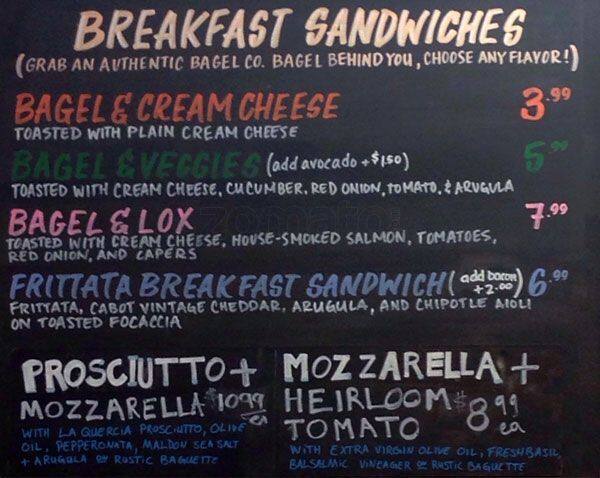 BREAKFAST SANDWICHES
(GRAB AN AUTHENTIC BAGEL CO. BAGEL BEHIND YOU, CHOOSE ANY FLAVOR!)
BAGEL & CREAM CHEESE 3.99
TOASTED WITH PLAIN CREAM CHEESE
BAGEL & VEGGIES (add avocado +$1.50) 5.99
TOASTED WITH CREAM CHEESE, CUCUMBER, RED ONION, TOMATO, & ARUGULA
BAGEL & LOX 7.99
zomato
TOASTED WITH CREAM CHEESE, HOUSE-SMOKED SALMON, TOMATOES,
RED ONION, AND CAPERS
FRITTATA BREAKFAST SANDWICH (add bacon +2.00) 6.99
FRITTATA, CABOT VINTAGE CHEDDAR, ARUGULA, AND CHIPOTLE AIOLI
ON TOASTED FOCACCIA
PROSCIUTTO +
MOZZARELLA $10.99 ea
WITH LA QUERCIA PROSCIUTTO, OLIVE
OIL, PEPPERONATA, MALDON SEA SALT
+ ARUGULA on RUSTIC BAGUETTE
MOZZARELLA +
HEIRLOOM
TOMATO $8.99 ea
WITH EXTRA VIRGIN OLIVE OIL, FRESH BASIL,
BALSALMIC VINEAGER on RUSTIC BAGUETTE